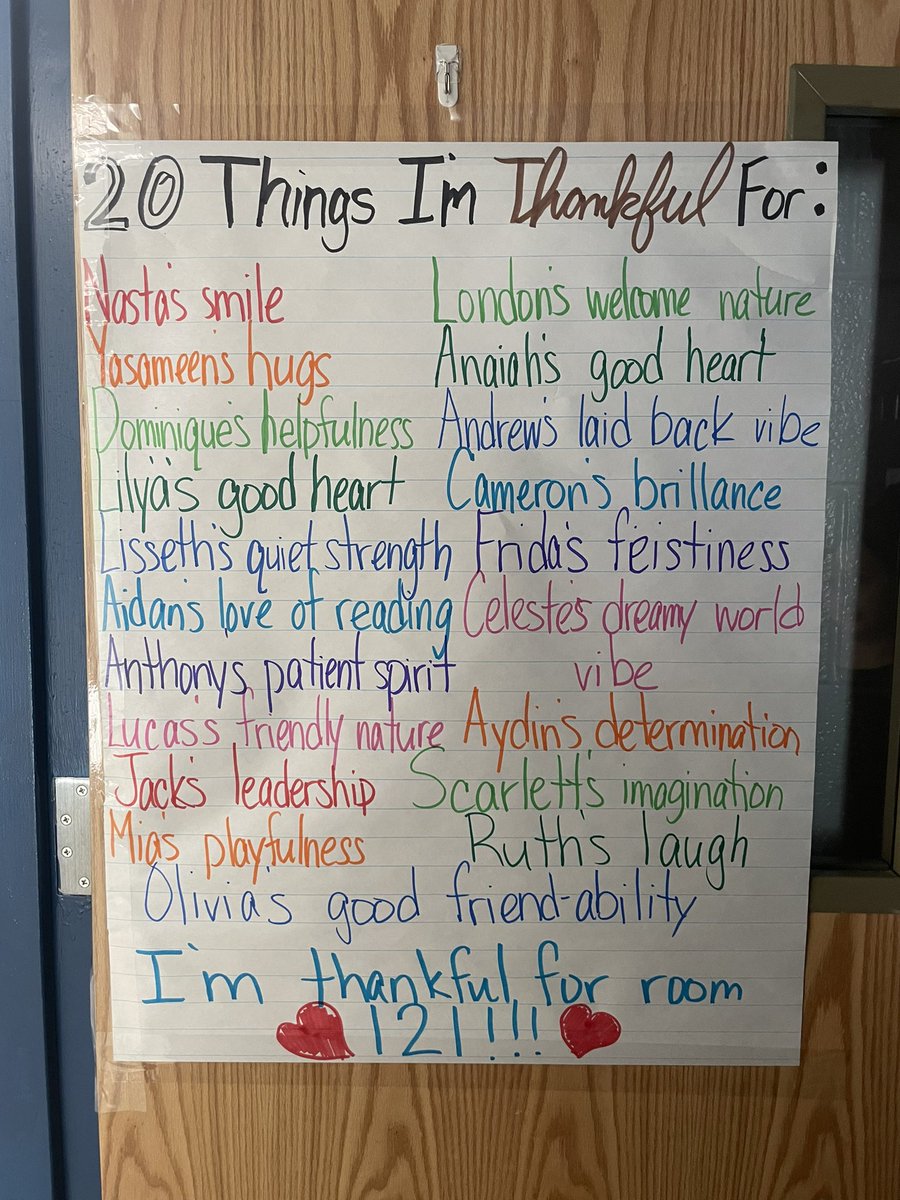 20 Things I'm Thankful For:
Nasta's smile
Yasameen's hugs
Dominique's helpfulness
Lilya's good heart
Lisseth's quiet strength
Aidan's love of reading
Anthony's patient spirit
Lucas's friendly nature
Jack's leadership
Mia's playfulness
London's welcome nature
Anaiah's good heart
Andrew's laid back vibe
Cameron's brillance
Frida's feistiness
Celeste's dreamy world
vibe
Aydin's determination
Scarlett's imagination
Ruth's laugh
Olivia's good friend-ability
I'm thankful for room
121!!!